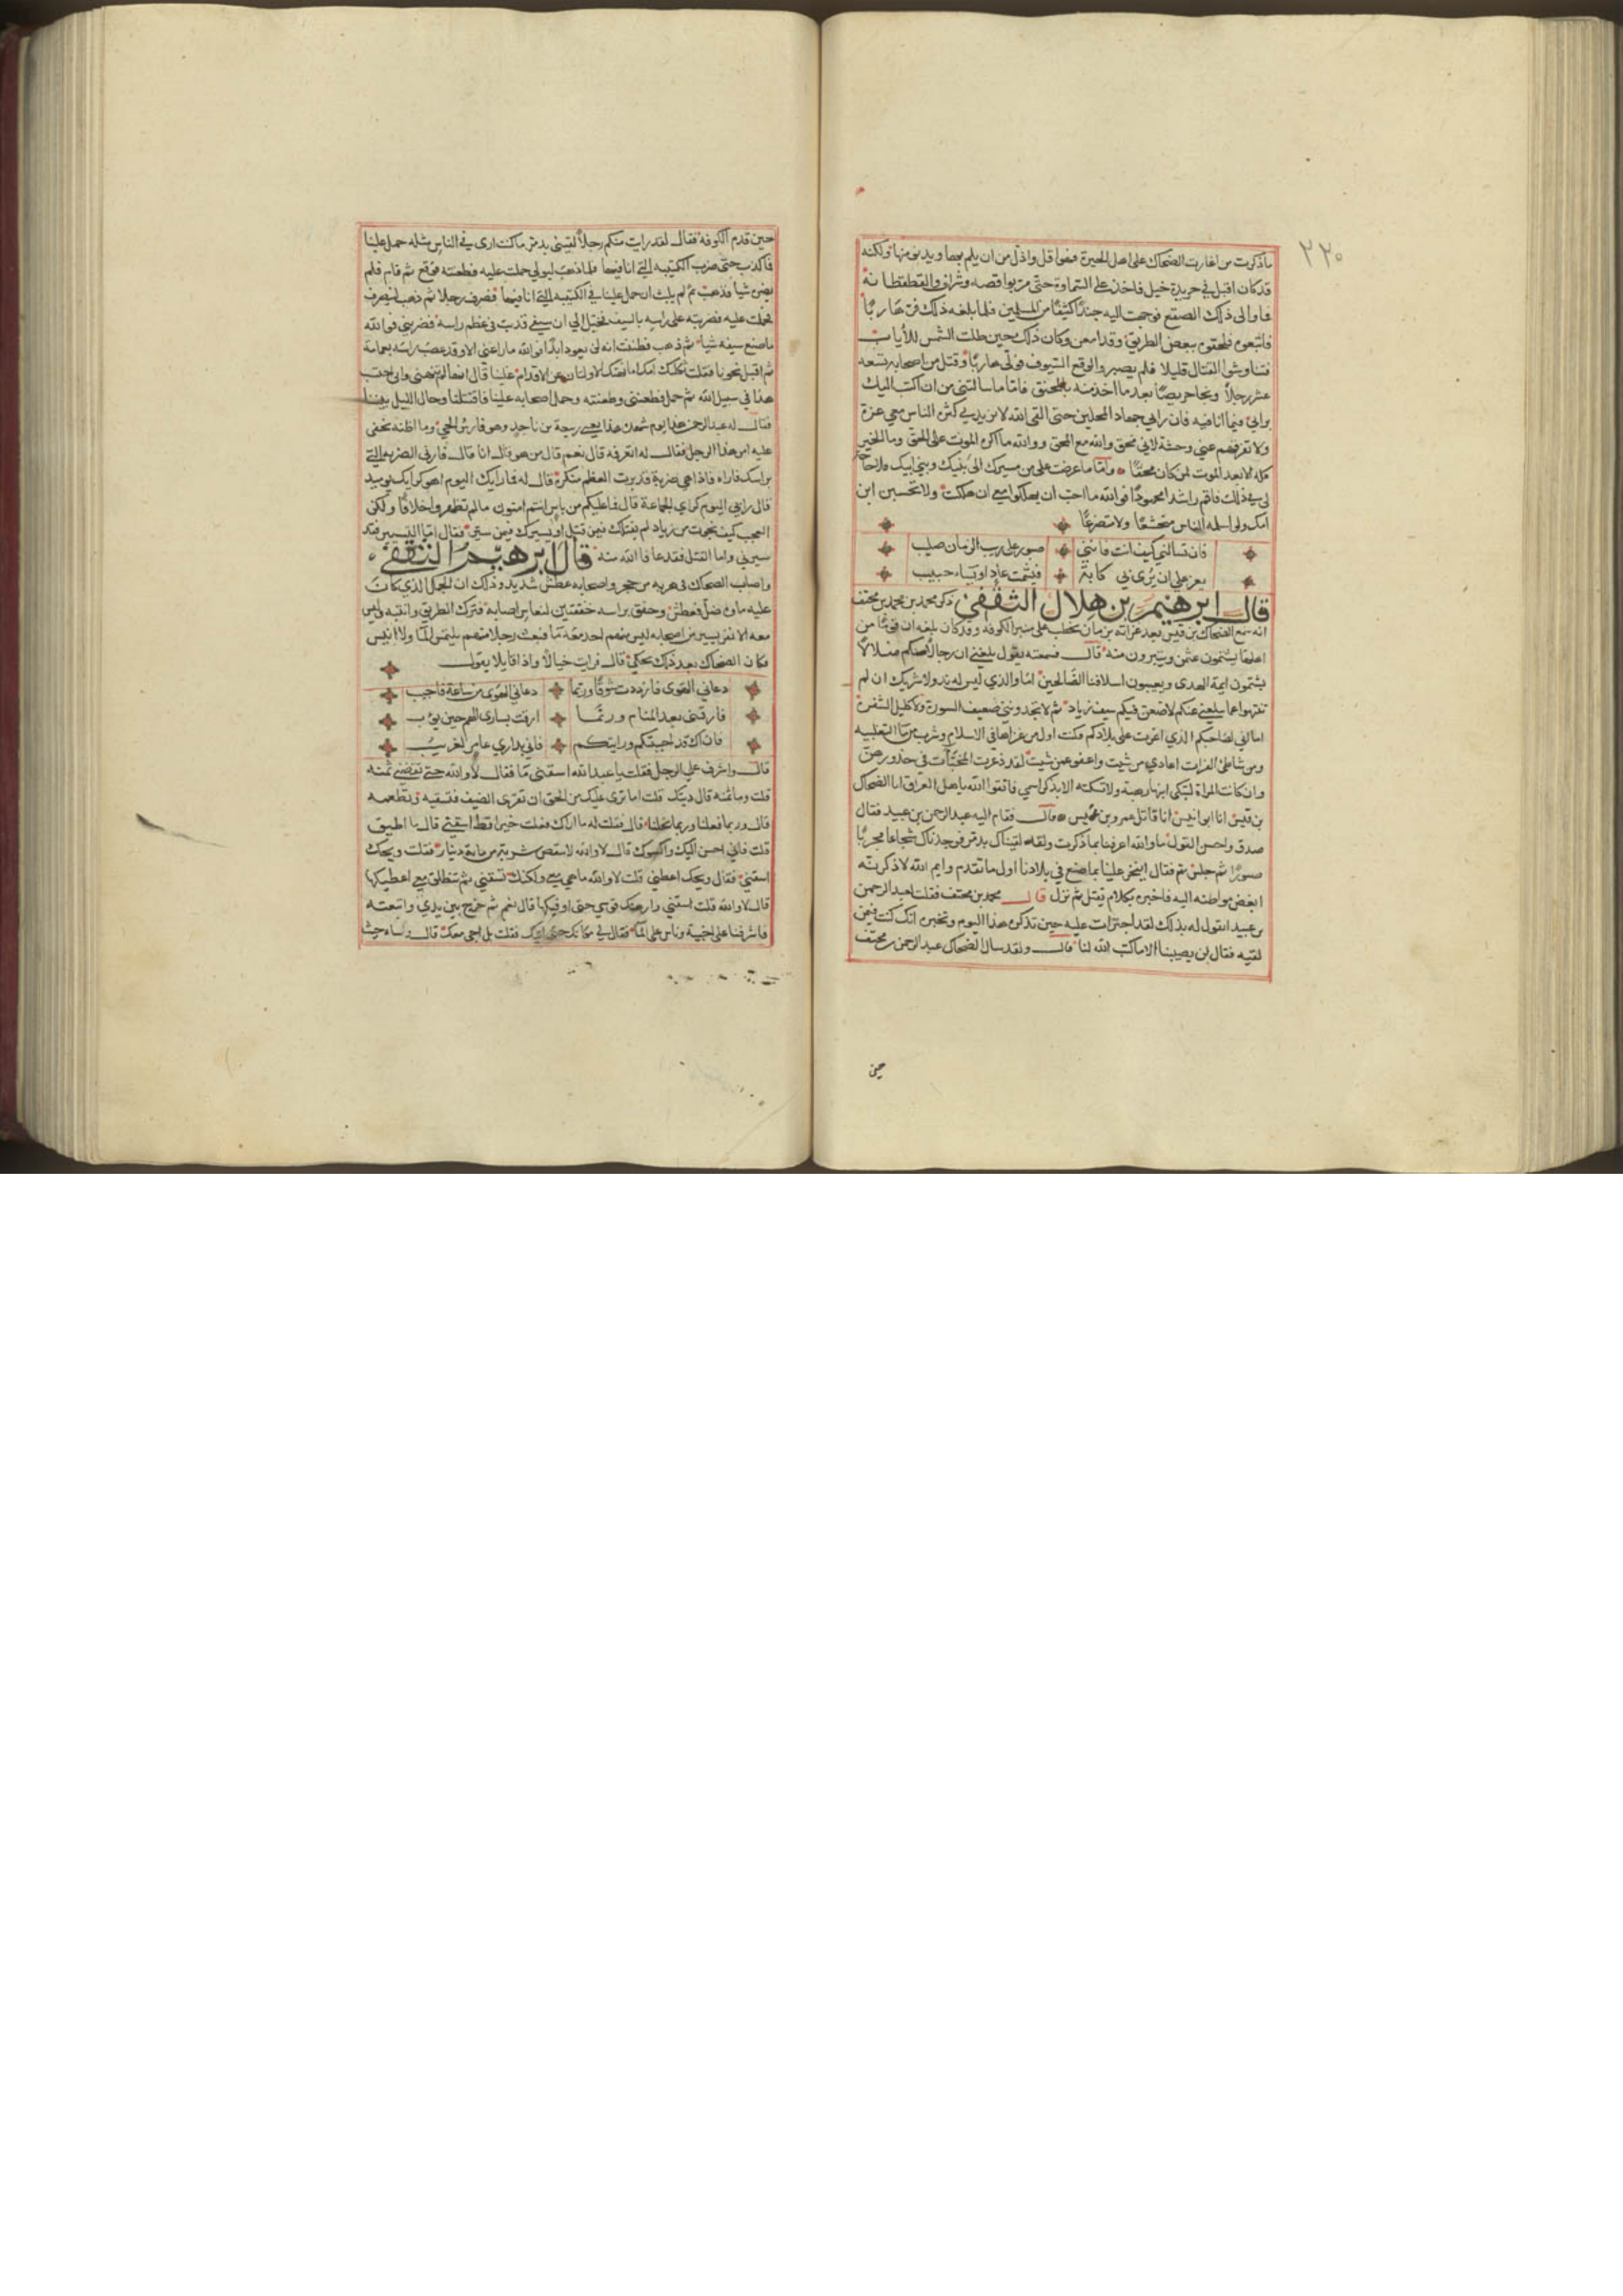 ٣٢٠
ما ذكرت من اغارت الضحاك على اهل الحيرة فهو اقل واذل من ان يلم بها ويدنو منها ولكنه
قد كان اقبل في جريدة خيل فاخذ على السماوة حتى مر بواقصه وشراف والقطقطانة
فما والى ذلك الصقع فوجهت اليه جندًا كثيفًا من المسلمين فلما بلغه ذلك فر هاربًا
فاتبعوه فلحقوه ببعض الطريق وقد امعن وكان ذلك حين طفلت الشمس للأياب
فتناوشوا القتال قليلا فلم يصبر والوقع السيوف فولى هاربًا وقتل من اصحابه بضعه
عشر رجلاً ونجا جريضًا بعد ما اخذ منه بالمخنق فاما ما سالتني من ان اكتب اليك
برايي فيما انا فيه فان رايي جهاد المحلين حتى القى الله لا يزيدني كثرة الناس معي عزة
ولا تفرقهم عني وحشة لاني محق والله مع المحق ووالله ما اكره الموت على الحق وما الخير
كله الا بعد الموت لمن كان محقًا واما ما عرضت علي من مسيرك الي ببنيك وبني ابيك فلا حاجة
لي في ذلك فاقم راشدا محمودًا فوالله ما احب ان يهلكوا معي ان هلكت ولا تحسبن ابن
امك ولو اسلمه الناس متخشعًا ولا متضرعًا
فان تسالني كيف انت فانني صبور على ريب الزمان صليب
يعز علي ان يُرى بي كابة فيشمت عادٍ او يساء حبيب
قال ابرهيم بن هلال الثقفي ذكر محمد بن محمد بن مخنف
انه سمع الضحاك بن قيس بعد غزاته بزمان يخطب على منبر الكوفه وقد كان بلغه ان قومًا من
اهلها يشتمون عثمن ويتبرون منه قال فسمعته يقول بلغني ان رجالاً منكم ضلالاً
يشتمون ايمة الهدى ويعيبون اسلافنا الصالحين اما والذي ليس له ند ولا شريك ان لم
تنتهوا عما يبلغني عنكم لاضعن فيكم سيف زياد ثم لا تجدونني ضعيف السورة ولا كليل الشفرة
اما اني لصاحبكم الذي اغرت على بلادكم فكنت اول من غزاها في الاسلام وشرب من ماء الثعلبيه
ومن شاطئ الفرات اعادي من شيت واعفو عمن شيت لقد ذعرت المخبآت في خدورهن
وان كانت المراة ليبكي ابنها ولا تسكته الا بذكر اسمي فاتقوا الله يا اهل العراق انا الضحاك
بن قيس انا ابو انيس انا قاتل عمرو بن عميس قال فقام اليه عبد الرحمن بن عبيد فقال
صدق واحسن القول ما والله اعرفنا بما ذكرت ولقد لقيناك بدمر فوجدناك شجاعا مجربًا
صبورًا ثم جلس ثم فقال ايفخر علينا بما صنع في بلادنا اول ما تقدم وايم الله لاذكرنه
ابغض مواطنه اليه فاخبره بكلام ثم نزل قال محمد بن مخنف فقلت لعبد الرحمن
بن عبيد اتقول له بذلك لقد اجترات عليه حين تذكره هذا اليوم وتخبره انك كنت فيمن
لقيه فقال لن يصيبنا الا ما كتب الله لنا قال ولقد سال الضحاك عبد الرحمن بن مخنف
حين
حين قدم الكوفة فقال لقد رايت منكم رجلاً لقيني بدمر ما كنت ارى في الناس مثله حمل علينا
فما كذب حتى ضرب الكتيبه التي انا فيها فلما ذهب ليولي حملت عليه فطعنته فوقع ثم قام فلم
يضره شيا فذهب ثم لم يلبث ان حمل علينا في الكتيبه التي انا فيها فصرف رجلا ثم ذهب لينصرف
فحملت عليه فضربته على راسه بالسيف فخيل الي ان سيفي قد ثبت في عظم راسه فضربني فوالله
ما صنع سيفه شيا ثم ذهب فظننت انه لن يعود ابدًا فوالله ما راعني الا وقد عصب راسه بعمامة
ثم اقبل نحونا فقلت ثكلتك امك اما نهتك الاوليان عن الاقدام علينا قال انهما لم ينهني وانا احتسب
هذا في سبيل الله ثم حمل فطعنني وطعنته وحمل اصحابه علينا فاقتتلنا وحال الليل بيننا
فقال له عبد الرحمن هذا يوم شهده هذا يعني ربيعة بن ناجد وهو فارس الحي وما اظنه يخفى
عليه امر هذا الرجل فقال له اتعرفه قال نعم قال من هو قال انا قال فارني الضربه التي
براسك فاراه فاذا هي ضربة قد برت العظم منكرة قال له فما رايك اليوم اهو كرايك يوميد
قال رايي اليوم كراي الجماعة قال فما عليكم من باس انتم امنون ما لم تظهروا خلافًا ولكن
العجب كيف نجوت من زياد لم يقتلك فيمن قتل او يسيرك فيمن سير فقال اما التسيير فقد
سيرني واما القتل فقد عافا الله منه قال ابرهيم الثقفي
واصاب الضحاك في هربه من حجر واصحابه عطش شديد وذلك ان الجمل الذي كان
عليه ماوه ضل فعطش وخفق براسه خفقتين لنعاس اصابه فترك الطريق وانتبه وليس
معه الا نفر يسير من اصحابه ليس منهم احد معه ماء فبعث رجلا منهم يلتمس الماء ولا انيس
فكان الضحاك بعد ذلك يحكي قال فرايت خيالاً واذا قايلا يقول
دعاني الهوى فازددت شوقًا وربما دعاني الهوى من ساعة فاجيب
فارقني بعد المنام وربما ارقت لساري الهم حين يؤب
فان اك قد احببتكم ورايتكم فاني بداري عامر لغريب
قال واشرف علي الرجل فقلت يا عبد الله اسقني ما فقال لا والله حتى تعطيني ثمنه
قلت وما ثمنه قال ديتك قلت اما ترى عليك من الحق ان تقري الضيف فتسقيه وتطعمه
قال وربما فعلنا وربما بخلنا قال فقلت له ما اراك فعلت خيرا قط اسقني قال ما اطيق
قلت فاني احسن اليك واكسوك قال لا والله لا انقص شربة من ماية دينار فقلت ويحك
اسقني فقال ويحك اعطني قلت لا والله ما هي معي ولكنك تسقني ثم تنطلق معي اعطيكها
قال لا والله قلت اسقني وارهنك فرسي حتى اوفيكها قال نعم ثم خرج بين يدي واتبعته
فاشرفنا على اخبية وناس على الماء فقال لي مكانك حتى اتيك فقلت بل اجي معك قال وساه حيث